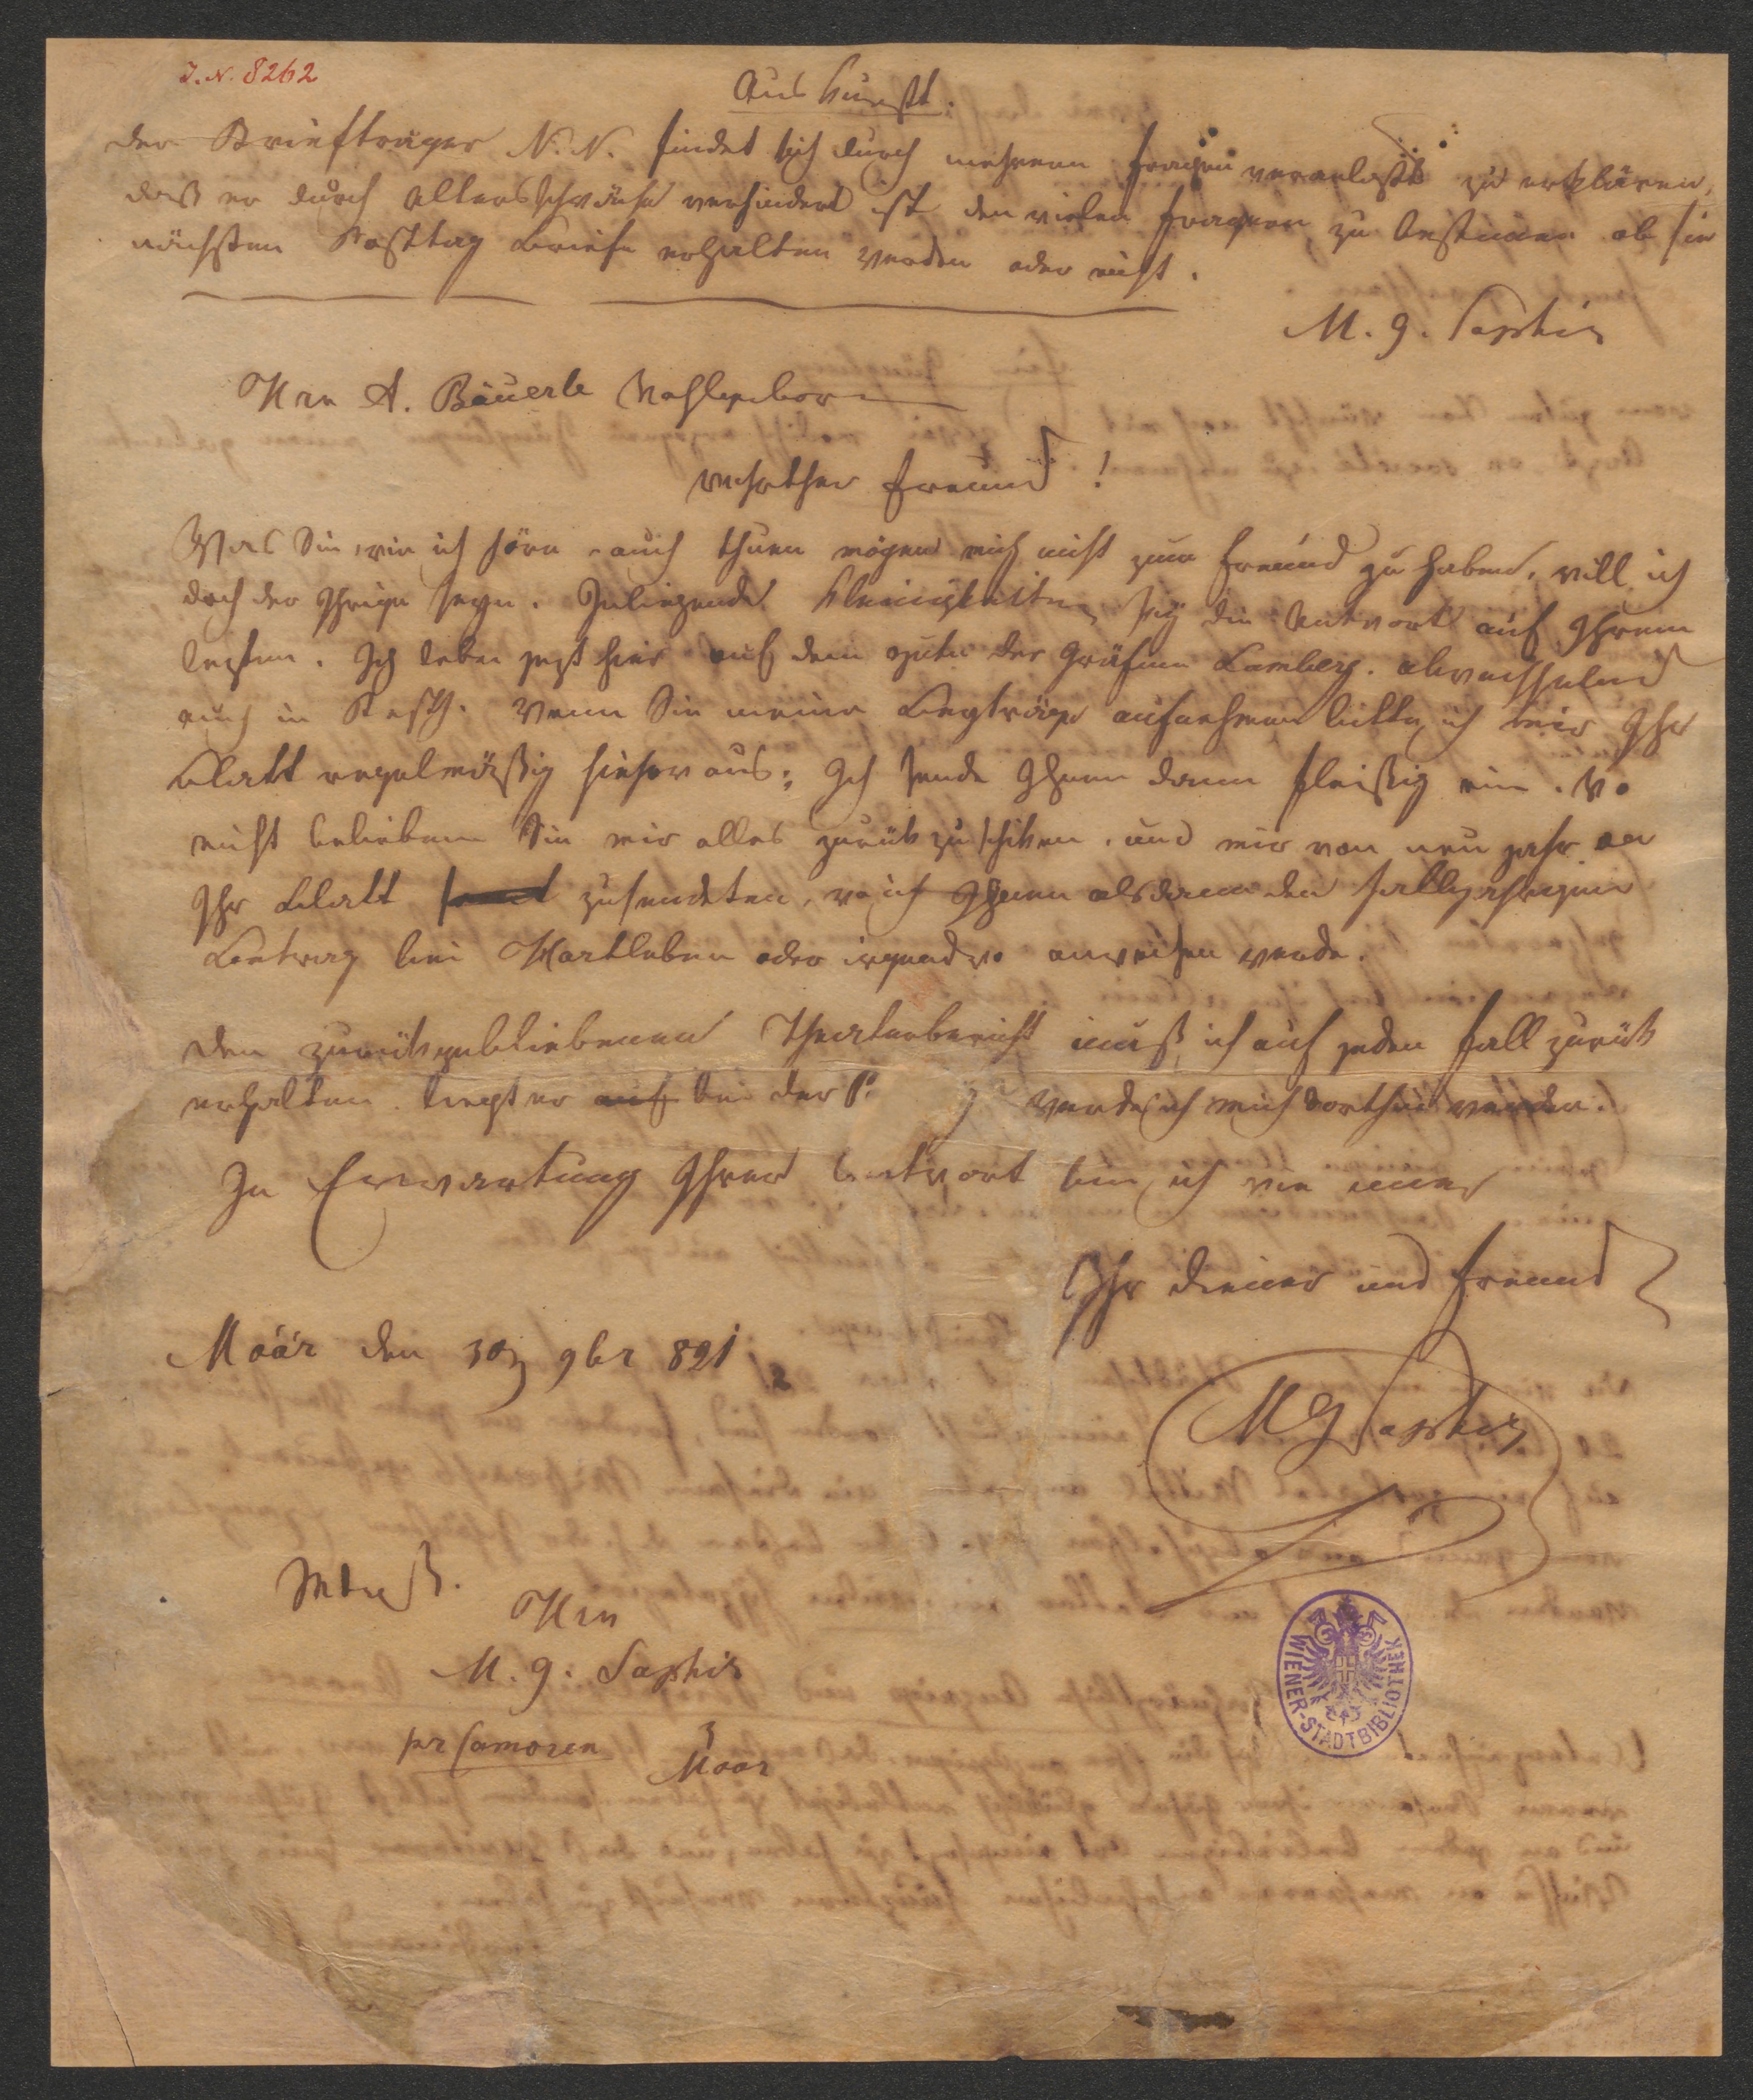 I.N. 8262
Auskunft.
Der Briefträger N. N. findet sich durch mehrere Fragen veranlaßt zu erklären,
daß er durch Altersschwäche verhindert ist den vielen Fragern, zu bestimen ob sie
nächsten Posttag Briefe erhalten werden oder nicht.
M. G. Saphir
Hrn A. Bäuerle Wohlgebor
Werther Freund!
Was Sie, wie ich höre auch thuen mögen mich nicht zum Freund zu haben, will ich
doch der Ihrige seyn. Inliegende Kleinigkeiten sey die Antwort auf Ihrem
lezten. Ich lebe jezt hier auf dem Gute der Gräfinn Lamberg. abwechselnd
auch in Pesth. Wenn Sie meine Beyträge aufnehmen bitte ich mir Ihr
Blatt regelmäßig hieher aus; Ich sende Ihnen dann fleißig ein. Wo
nicht belieben Sie mir alles zurük zu schiken, und mir von neu Jahr an
Ihr Blatt zusendeten, wo ich Ihnen alsdann den halbjahrigen
Betrag bei Hartleben oder irgendwo anweisen werde.
Den zurükgebliebenen Theaterbericht muß ich auf jeden Fall zurük
erhalten. liegt er auf bei der P. werde ich mich dorthin wenden.
In Erwartung Ihrer Antwort bin ich wie immer
Ihr Diener und Freund
Moár den 30 9br 821
2
MGSaphir
Adreß.
Hrn
M. G. Saphir
pr Comoren
Moor
WIENER-STADTBIBLIOTHEK